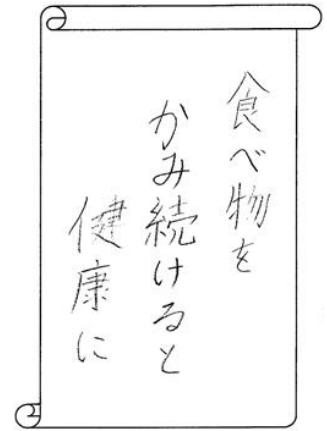 食べ物を
かみ続けると
健康に